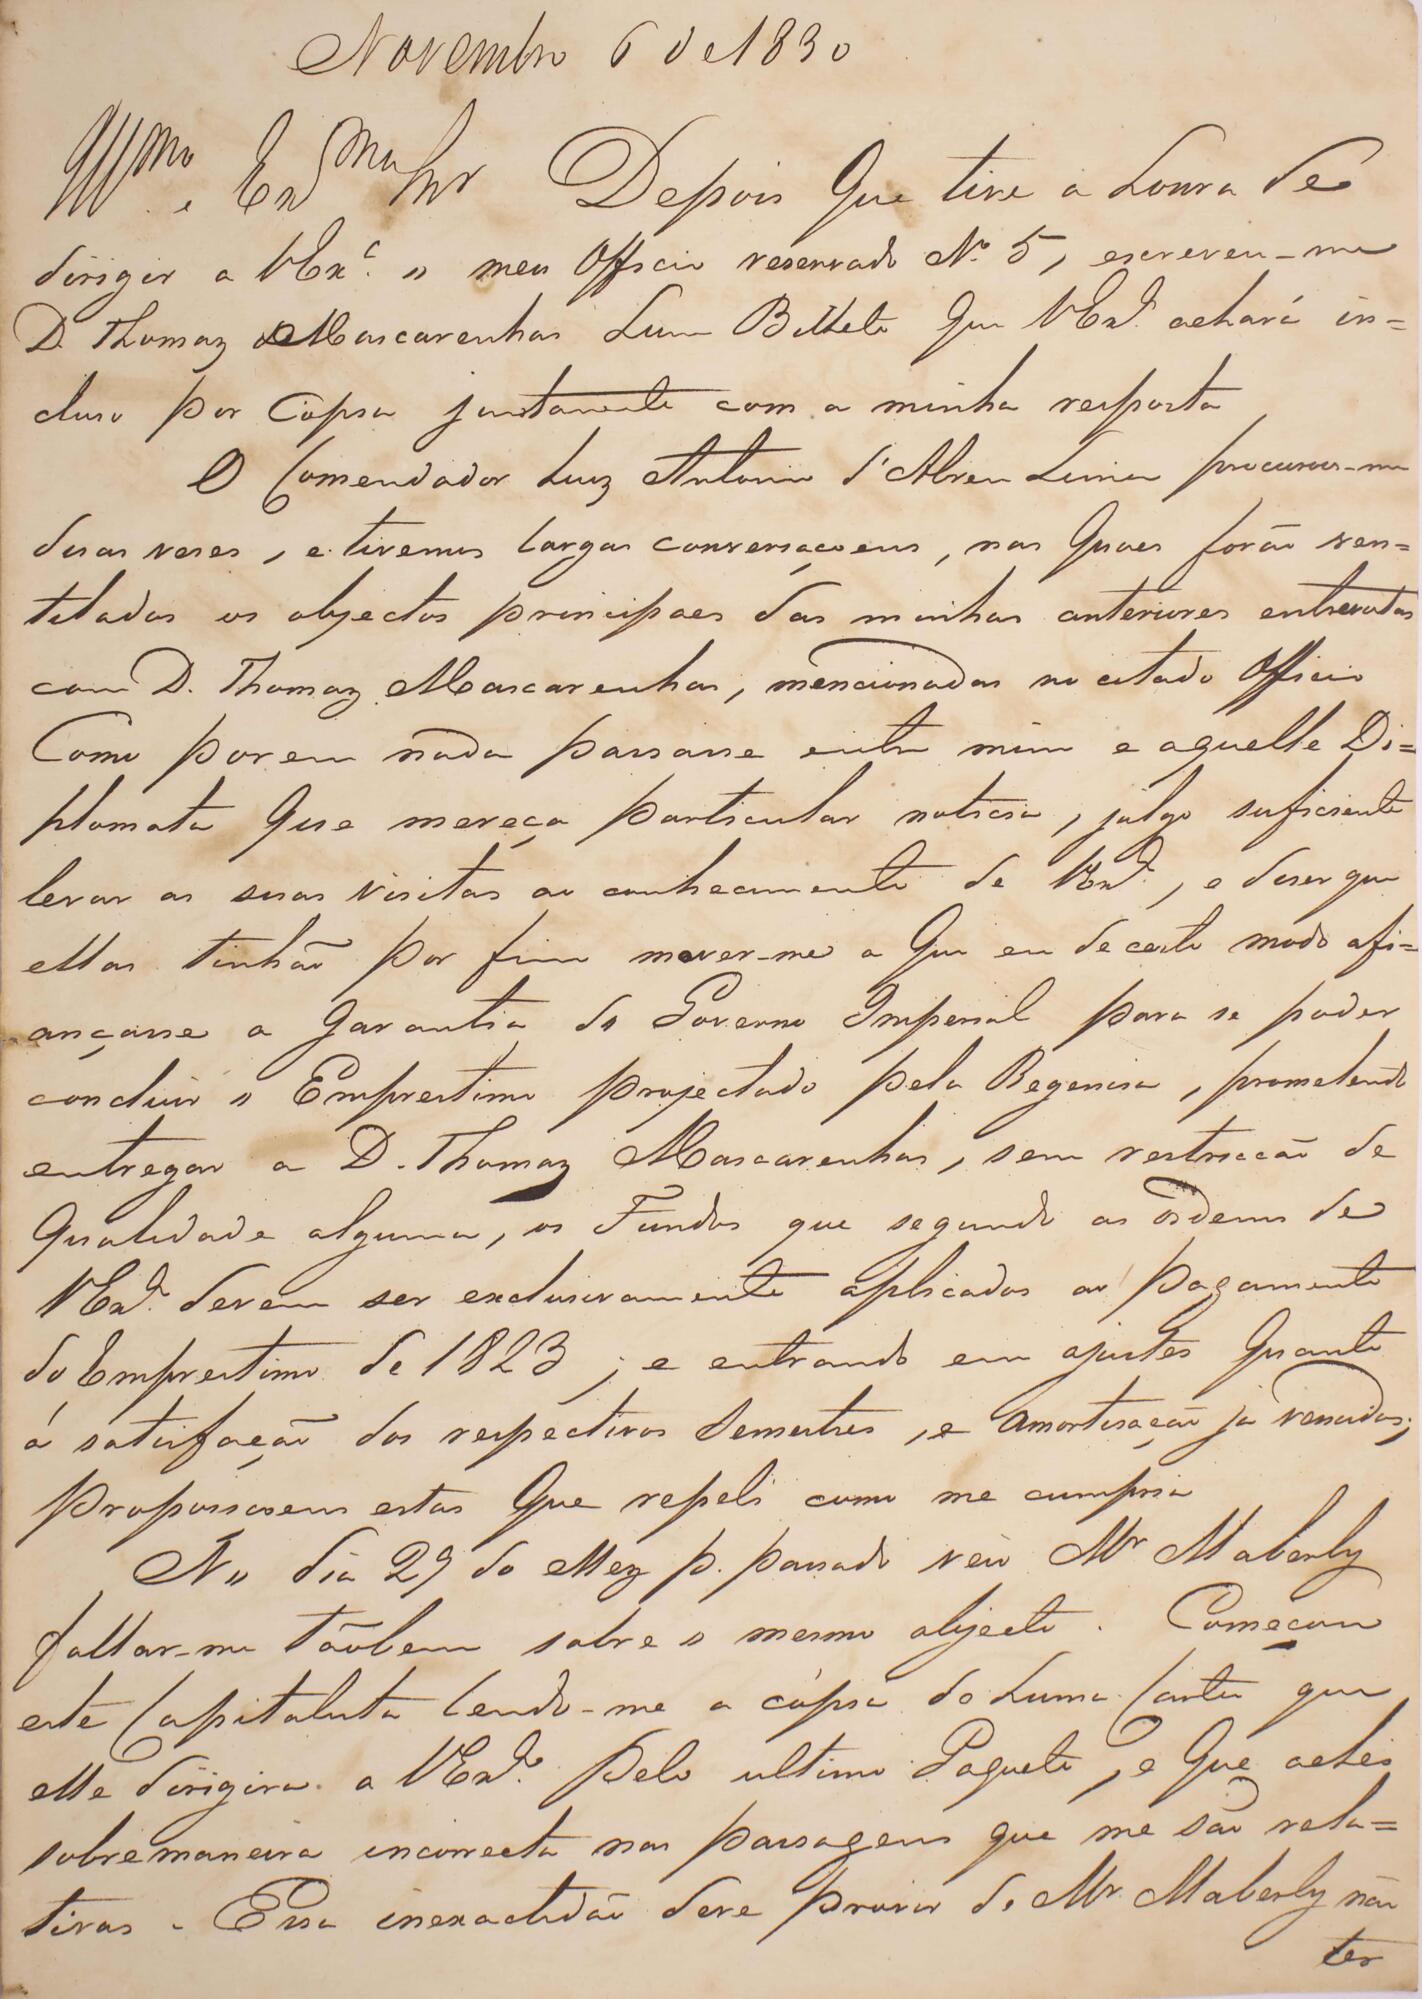 Novembro 6 de 1830
Illmo e Exmo Snr Depois que tive a honra de
dirigir a VExc.ª o meu Officio reservado Nº 5, escreveu-me
D. Thomaz Mascarenhas hum Bilhete que VExª achará in=
cluso por Copia juntamente com a minha resposta
O Comendador Luiz Antonio d'Abreu Lima procurou-me
duas veses, e tivemos largas conversaçoens, nas quaes forão ven=
tiladas os objectos principaes das minhas anteriores entrevistas
com D. Thomaz Mascarenhas, mencionadas no citado Officio
Como porem nada passasse entre mim e aquelle Di=
plomata que mereça particular noticia, julgo suficiente
levar as suas visitas ao conhecimento de VExª, e diser que
ellas tinhão por fim mover-me a que eu de certo modo afi=
ançasse a garantia do Governo Imperial para se poder
concluir o Emprestimo projectado pela Regencia, prometendo
entregar a D. Thomaz Mascarenhas, sem restricção de
qualidade alguma, os Fundos que segundo as ordens de
VExª devem ser exclusivamente aplicados ao pagamento
do Emprestimo de 1823; e entrando em ajustes quanto
á satisfação dos respectivos Semestres, e amortisação ja vencidos;
proposissoens estas que repeli como me cumpria
No dia 29 do Mez p. passado veio Mr Maberly
fallar-me tãobem sobre o mesmo objecto. Começou
este Capitalista lendo-me a cópia de huma Carta que
elle dirigira a VExª pelo ultimo Paquete, e que achei
sobremaneira incorrecta nas passagens que me são rela=
tivas. Essa inexactidão deve provir de Mr Maberly não
ter